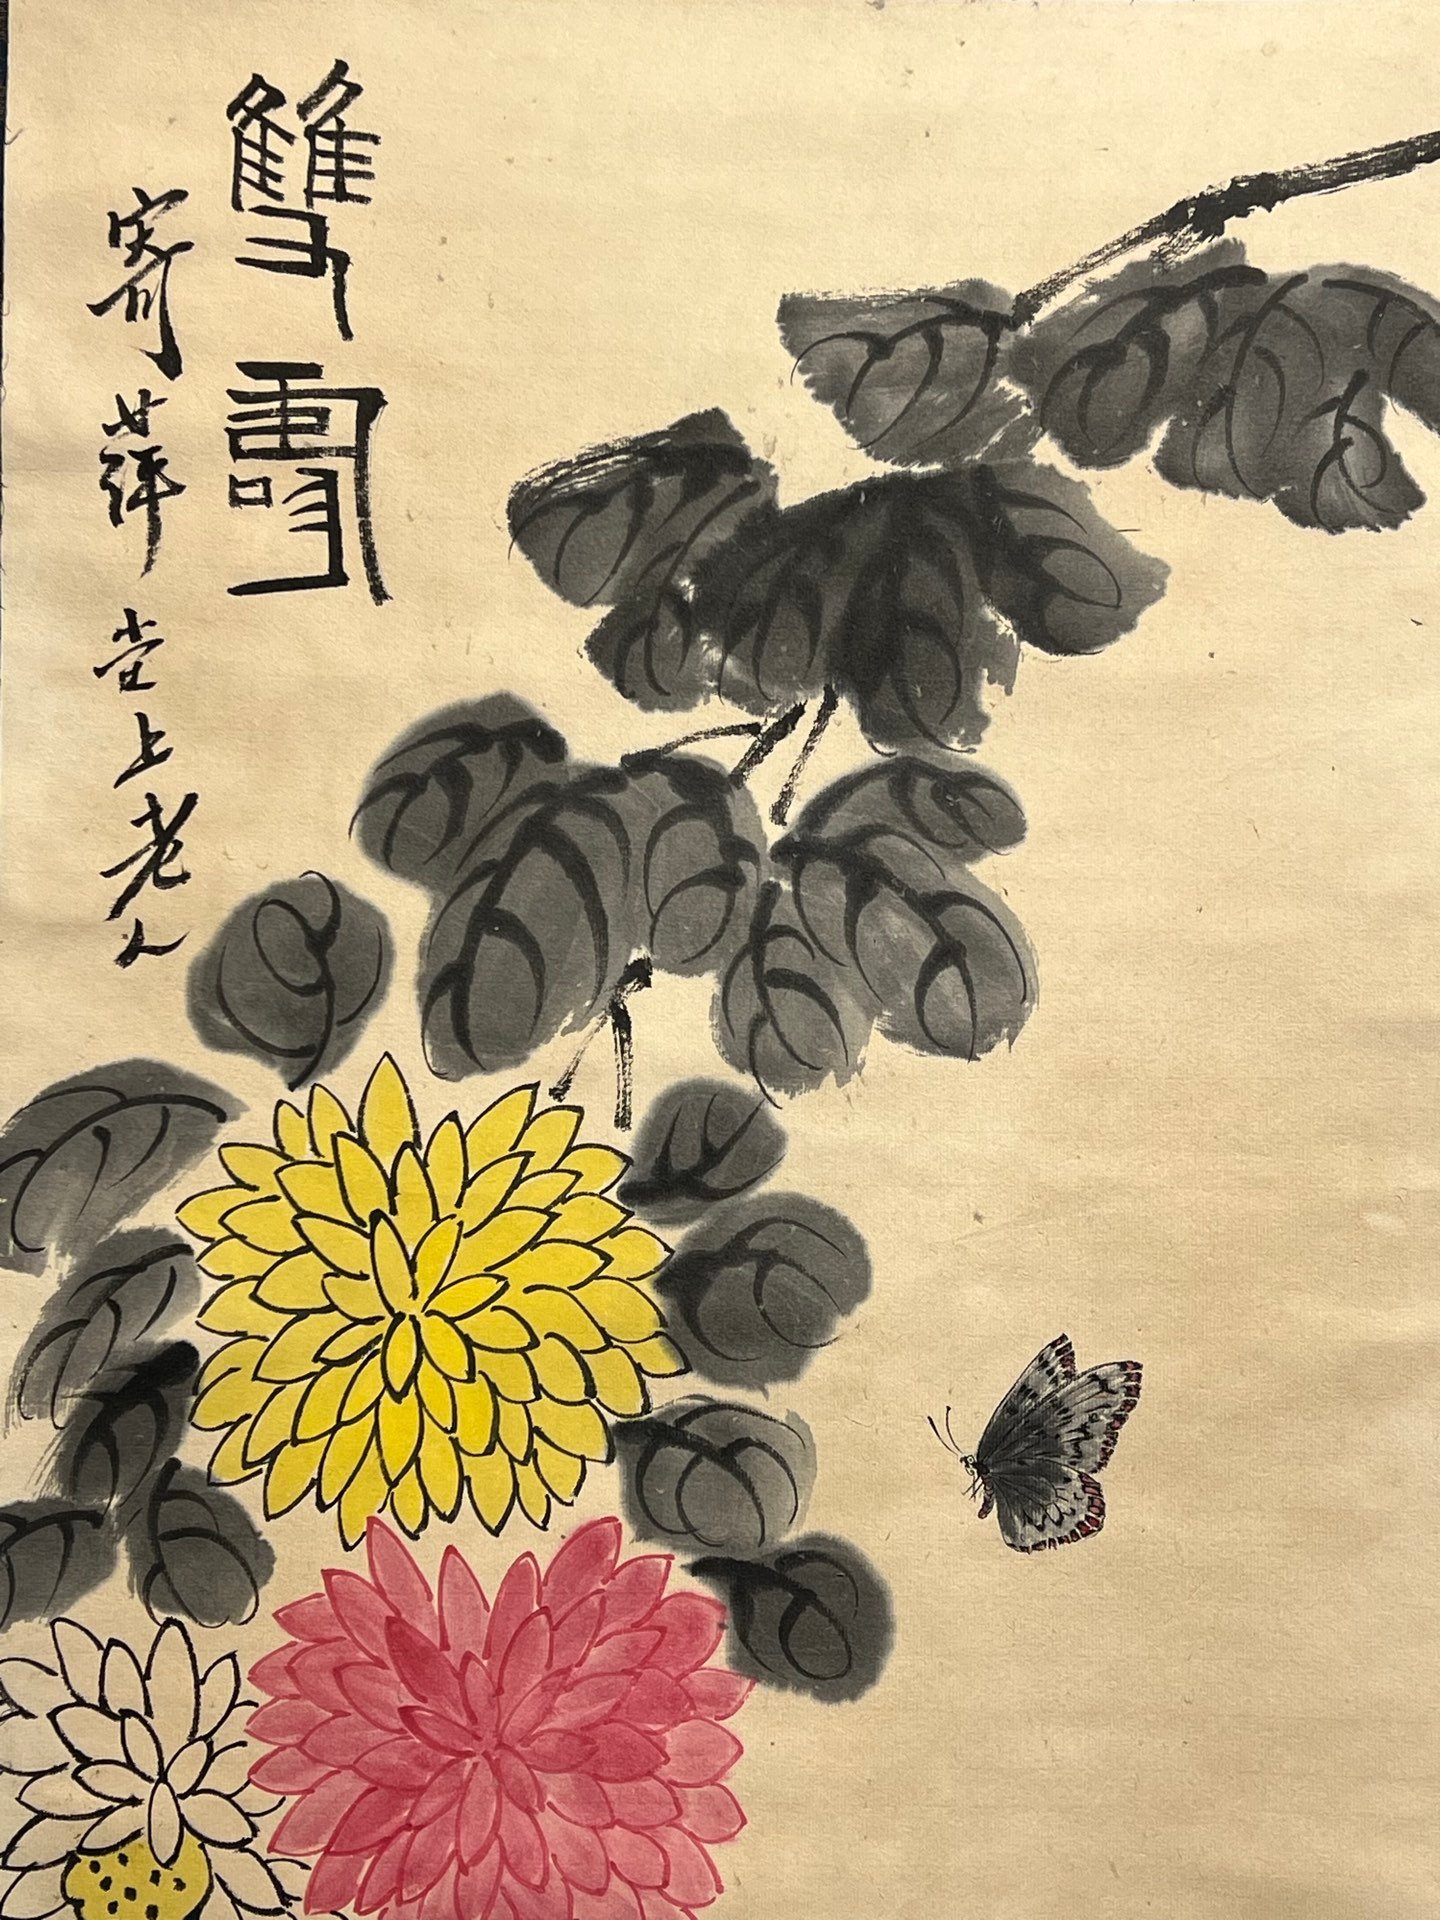 雙壽
寄萍堂上老人